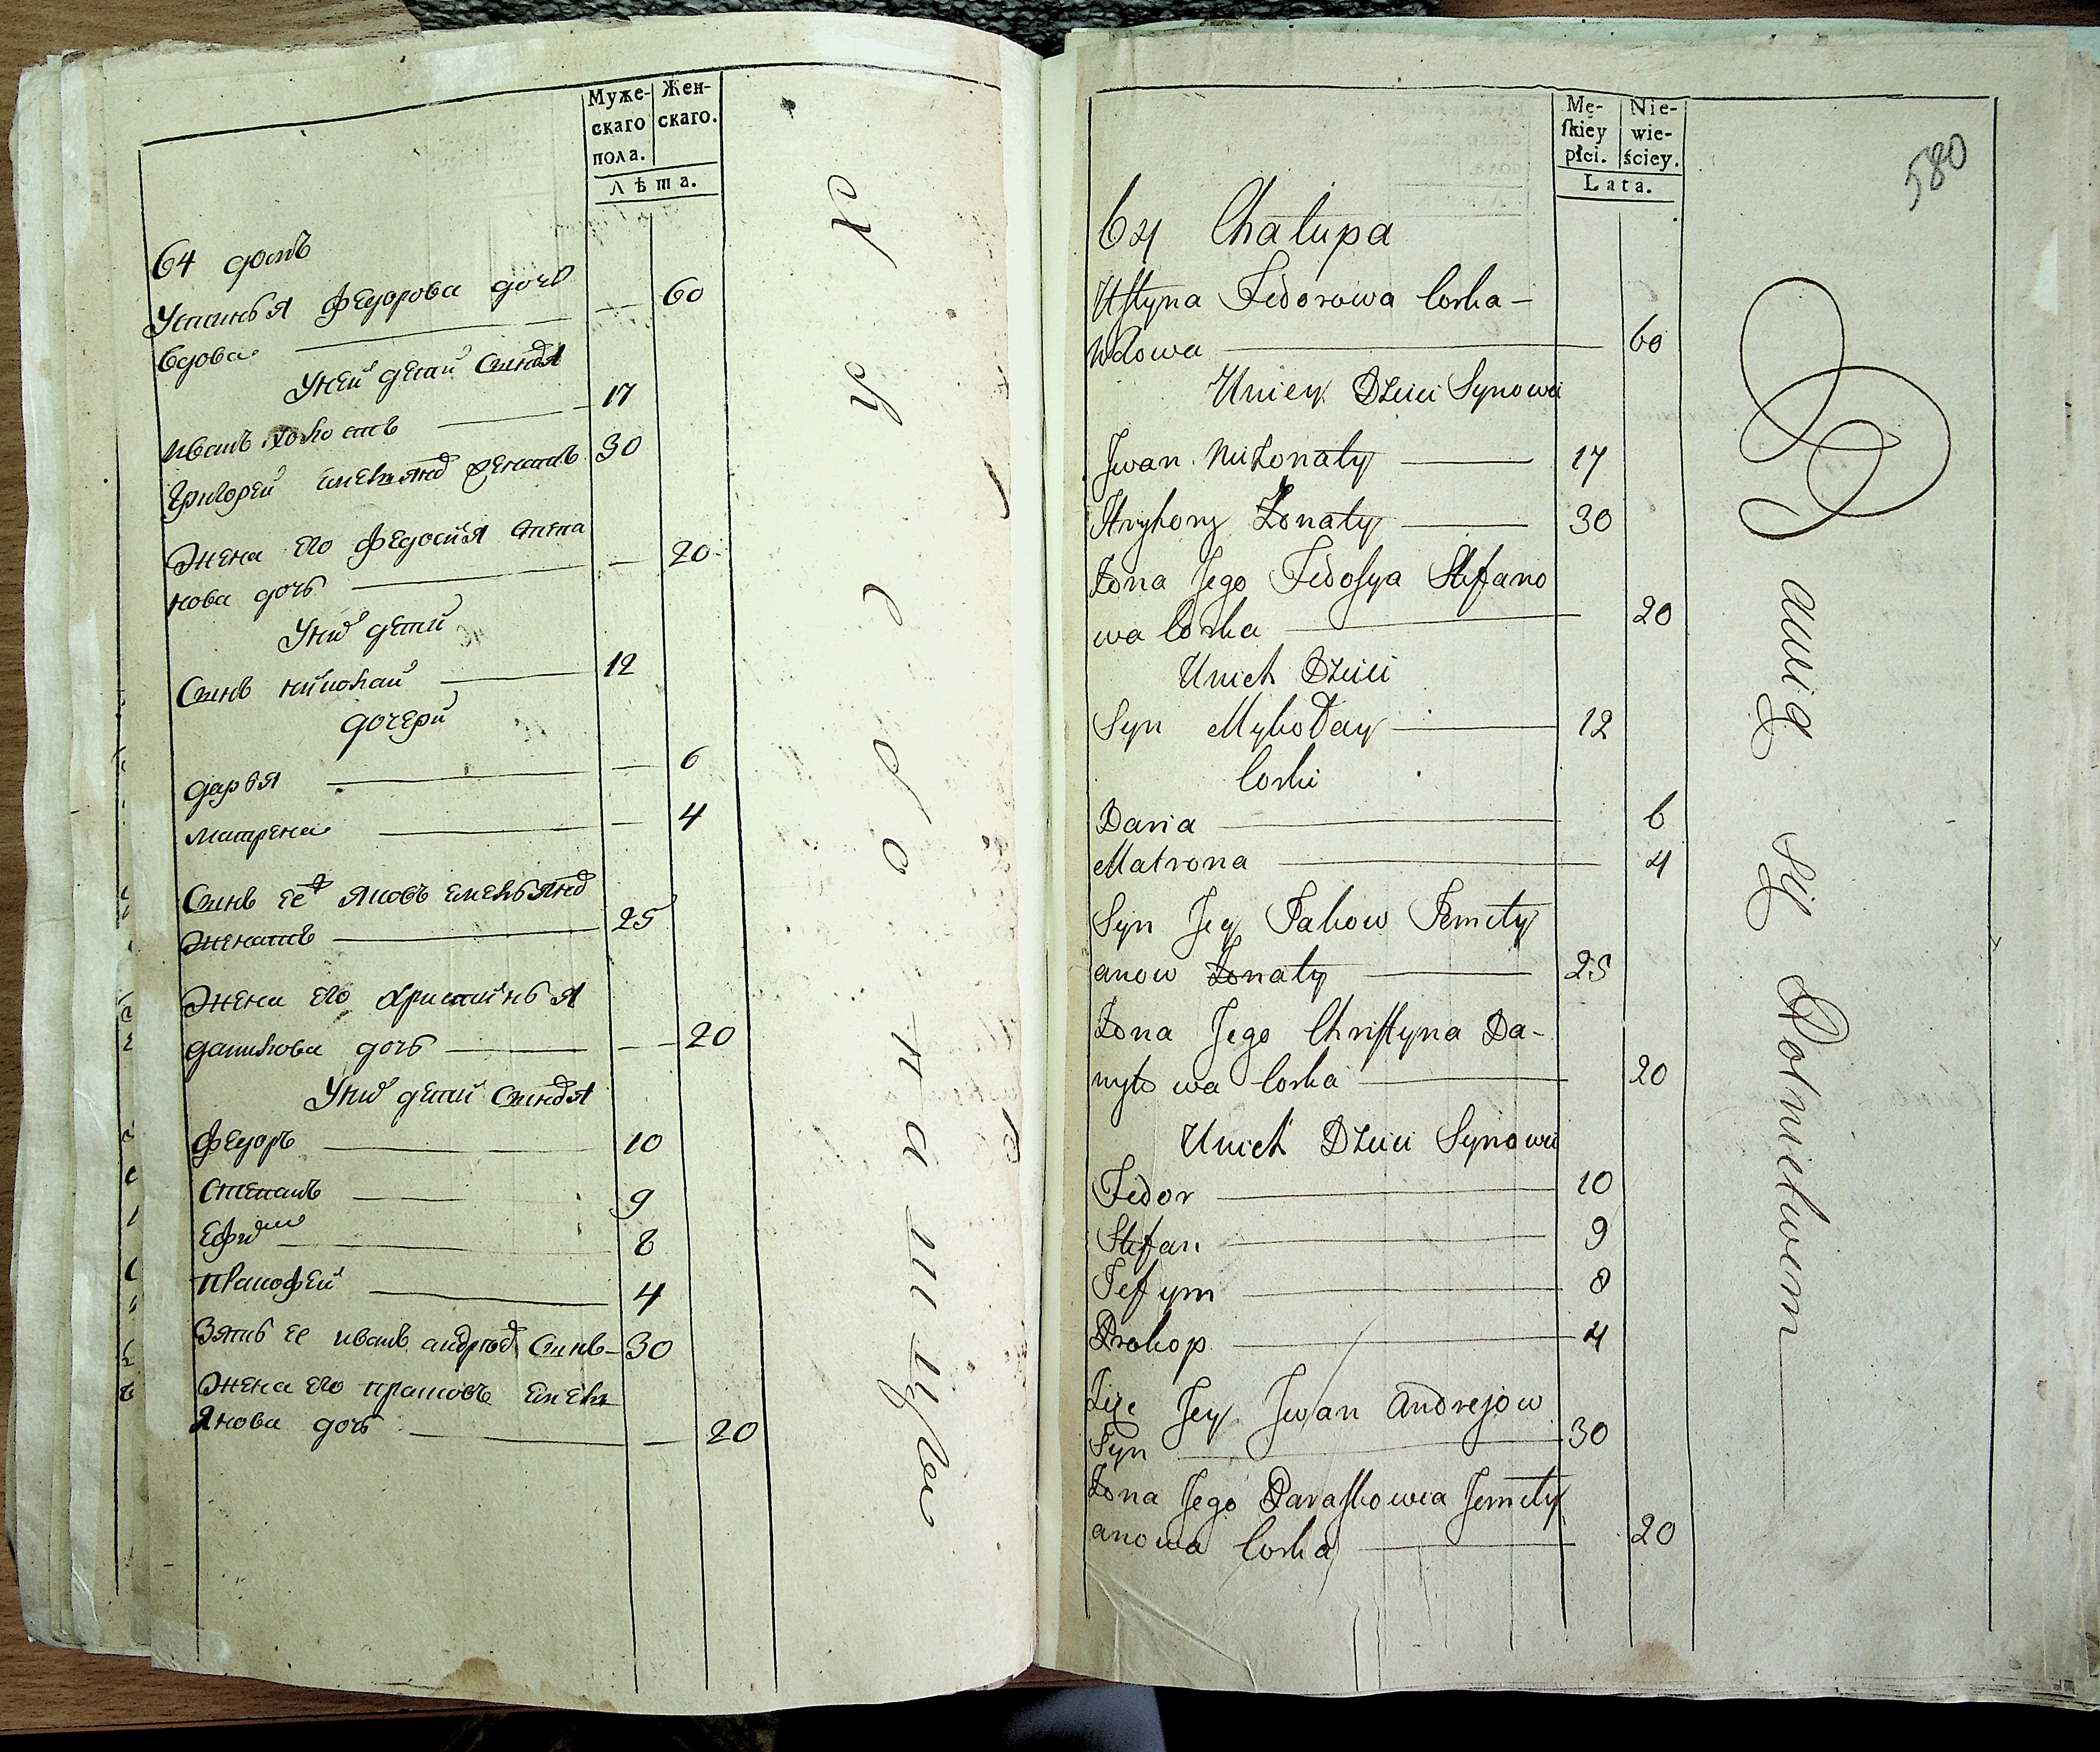 Муже-
скаго
пола.
Жен-
скаго.
Лѣта.
64 домъ
Устинья Федорова дочь
вдова — 60
У ней дети сыновья
Иванъ холостъ — 17
Григорей емельянов женатъ 30
Жена его Федосия Степа
нова дочь — 20
У них дети
Сынъ николай — 12
дочери
дарья — 6
матрена — 4
Сынъ ее яковъ емельянов
женатъ — 25
Жена его Христинья
данилова дочь — 20
У них дети сыновья
Федоръ — 10
Степанъ — 9
Ефим — 8
4
Зять ее иванъ андреев сынъ — 30
Жена его прасковъ емель
янова дочь — 20
Mę-
ſkiey
płci.
Nie-
wie-
ściey.
Lata.
580
64 Chałupa
Uſtyna Fedorowa Corka —
Wdowa — 60
Uniey Dzieci Synowie
Jwan Nieżonaty — 17
Hryhory Żonaty — 30
Żona Jego Fedoſya Stefano
wa Corka — 20
Unich Dzieci
Syn Mykołay — 12
Corki
Daria — 6
Matrona — 4
Syn Jey Jakow Jemely
anow Żonaty — 25
Żona Jego Chriſtyna Da-
nyło wa Corka — 20
Unich Dzieci Synowie
Fedor — 10
Stefan — 9
Jefym — 8
Prokop — 4
Jey Jwan Andrejow
Syn — 30
Żona Jego Paraſkowia Jemely
anowa Corka — 20
Bawią się Rolnictwem —